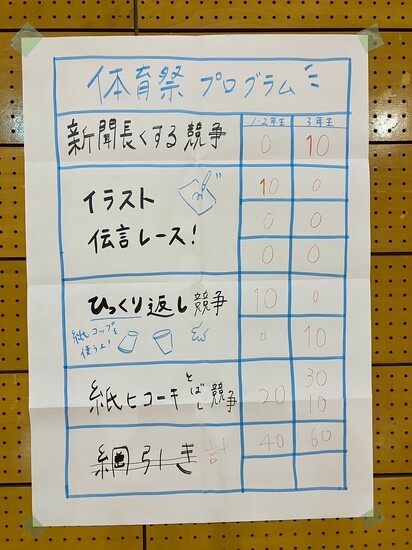 体育祭 プログラム
1・2年生 3年生
新聞長くする競争 0 10
イラスト 10 0
伝言レース! 0 0
0 0
ひっくり返し競争 10 0
紙コップを
使うよ! 0 10
紙ヒコーキとばし競争 20 30
10
綱引き 計 40 60